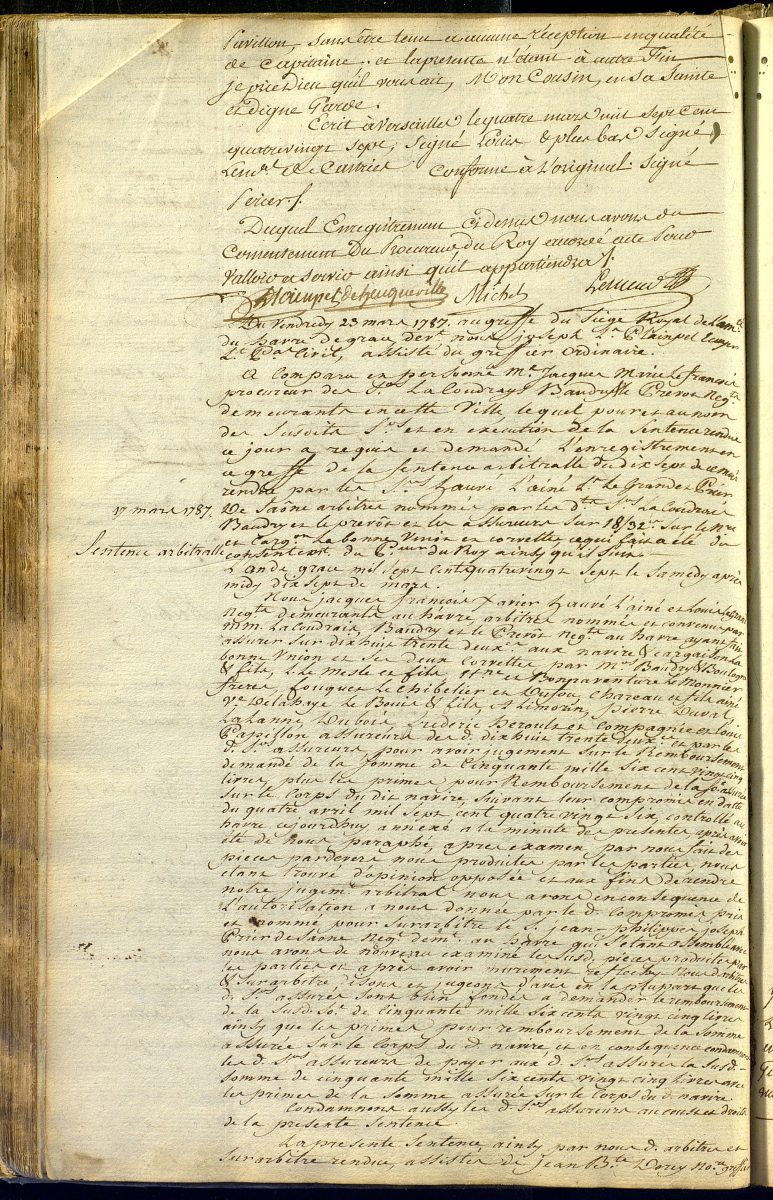 Pavillon, sans être tenu a aucune réception en qualité
de Capitaine .. et la presente n'étant à autre Fin
je prie Dieu qu'il vous ait, Mon Cousin, en sa Sainte
et Digne Garde.
Ecrit à Versailles le quatre mars mil sept cent
quatrevingt sept, signé Louis & plus bas signé
Le M.al de Castries Conforme à L'original signé
Perier ./.
Duquel Enregistrement Cidessus nous avons du
Consentement Du Procureur du Roy accordé acte Pour
Valloir et servir ainsi qu'il appartiendra ./.
Plainpel de heuqueville Michel
Du Vendredy 23 mars 1787. au greffe du Siège Royal de L'am.té
du havre de grace, dev.t nous joseph Plainpel Ecuyer
Lt. G.al Civil, assisté du greffier ordinaire.
A Comparu en personne Me. Jacques Marie Le francois
procureur des Srs. La Coudrays Baudry & le Prevot Neg.ts
demeurants en cette Ville lequel pour et au nom
des Susdits Srs. et en execution de la Sentence rendue
ce jour a requis et demandé L'enregistrement en
ce greffe de la Sentence arbitralle du dix Sept de ce mois
rendue par les Srs. hauré L'ainé Ls. Le Grand et Prier
17 mars 1787. De Saône arbitres nommés par les dts. Srs. La Coudrais
Baudry et le prevôt et les assureurs sur 18/32es. sur le Nre.
Sentence arbitralle et Cargon. La bonne Union et corvette ce qui fait a été du
consentemt. du Procureur du Roy ainsy qu'il suit
L'an de grace mil sept cent quatrevingt sept le Samedy après
midy dix sept de mars.
Nous jacques francois Xavier hauré L'ainé et Louis Le Grand
Negts. demeurants au havre, arbitres nommés et convenus par
MM. La Coudrais, Baudry et le Prevôt Negts. au havre ayant fait
assurer sur dix huit trente deuxes. aux navire & cargaison La
bonne Union et ses deux Corvettes, par Mrs. Baudry & Boulogne
& fils, Le Mesle et fils, Bonaventure Le Monnier
freres, fouquet Le Chibelier et Dufou, Chareau et fils ainé
Ve. Delahaye Le Bouis & fils, A Limozin, Pierre Duval
Lalanne, Dubois, frederic Heroult et Compagnie et Louis
Papillon assureurs des d. dix huit trente deuxes. et par les
d. Srs. assureurs, pour avoir jugement sur le Remboursement
demandé de la somme de Cinquante mille six cent vingt cinq
livres, plus les primes pour Remboursement de la se. assurée
sur le Corps du dit navire, suivant leur compromis en datte
du quatre avril mil sept cent quatrevingt six, controllé au
havre cejourdhuy annexé à la minute des presentes après avoir
été de nous paraphé, après examen par nous fait des
pieces par devers nous produites par les parties, nous
etant trouvé d'opinion opposée et aux fins de rendre
notre jugemt. arbitral nous avons en consequence de
L'autorisation a nous donnée par le d. compromis pris
et nommé pour surarbitre le S. jean-philippes joseph
Prier de Saône Negt. demt. au havre qui s'etant assemblé avec
nous avons de nouveau examiné les susd. pieces produites par
les parties et après avoir murement reflechy Nous d. arbitres
& surarbitre, disons et jugeons d'avis en la plupart que les
d. Srs. assurés sont bien fondés a demander le remboursement
de la susd. so. de cinquante mille six cents vingt cinq livres
ainsy que les primes pour remboursement de la somme
assurée sur le Corps du d. navire et en consequence condamnons
les d. Srs. assureurs de payer aux d. Srs. assurés la susd.
somme de cinquante mille six cents vingt cinq livres avec
les primes de la somme assurée sur le Corps du d. navire.
Condamnons aussy les d. Srs. assureurs au coust et droits
de la presente Sentence.
La presente Sentence ainsy par nous d. arbitres et
surarbitre rendue, assistés de jean Bte. Dorey Nore. greffier